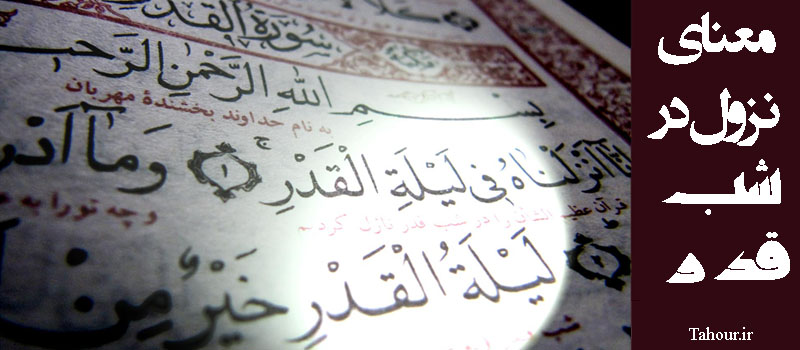 سُورَةُ الْقَدْرِ
بِسْمِ اللهِ الرَّحْمٰنِ
به نام خداوند بخشندهٔ مهربان
أَنْزَلْنَاهُ فِی لَیْلَةِ الْقَدْرِ ۱ وَمَا
قرآن عظیم الشأن را در شب قدر نازل کردیم و چه تو را به
لَیْلَةُ الْقَدْرِ خَیْرٌ مِنْ
معنای
نزول در
شب
قدر
Tahour.ir